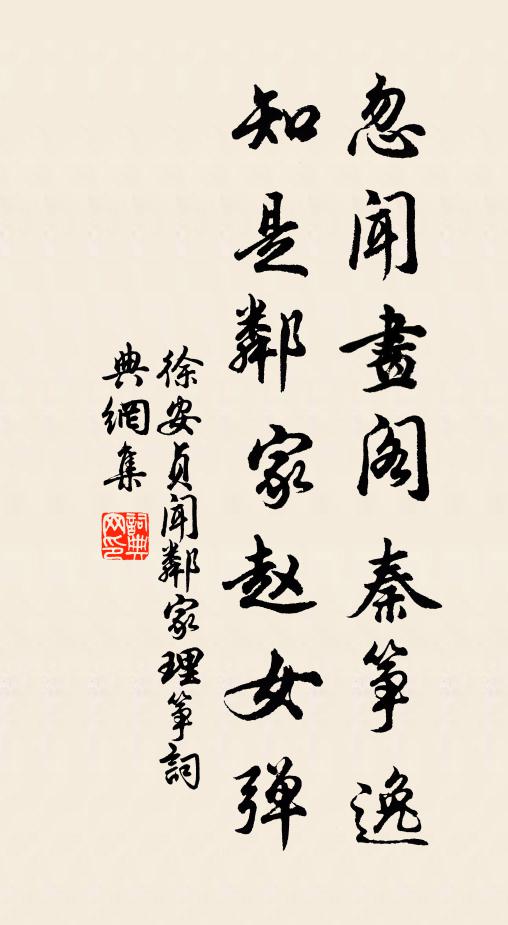 忽闻畫阁秦筝逸
知是鄰家赵女弹
徐安贞闻鄰家理筝詞
典網集
詞典网印